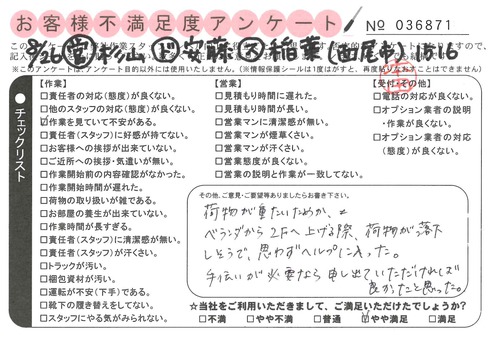 お客様不満足度アンケート
No 036871
8/26 営杉山 ド安藤 ス稲葉 (西尾市) 1516
※このアンケートは、アンケート目的以外には使用いたしません。(※情報保護シールは1度はがすと、再度貼りなおすことはできません)
チェックリスト
【作業】
□責任者の対応(態度)が良くない。
□他のスタッフの対応(態度)が良くない。
□作業を見ていて不安がある。
□責任者(スタッフ)に好感が持てない。
□お客様への挨拶が出来ていない。
□ご近所への挨拶・気遣いが無い。
□作業開始前の内容確認がなかった。
□作業開始時間が遅れた。
□荷物の取り扱いが雑である。
□お部屋の養生が出来ていない。
□作業時間が長すぎる。
□責任者(スタッフ)に清潔感が無い。
□責任者(スタッフ)が汗くさい。
□トラックが汚い。
□梱包資材が汚い。
□運転が不安(下手)である。
□靴下の履き替えをしてない。
□スタッフにやる気がみられない。
【営業】
□見積もり時間に遅れた。
□見積もり時間が長い。
□営業マンに清潔感が無い。
□営業マンが煙草くさい。
□営業マンが汗くさい。
□営業態度が良くない。
□営業の説明と作業が一致してない。
【受付・その他】
□電話の対応が良くない。
□オプション業者の説明・作業が良くない。
□オプション業者の対応(態度)が良くない。
その他、ご意見・ご要望等ありましたらお書き下さい。
荷物が重たいためか、
ベランダから2Fへ上げる際、荷物が落下
しそうで、思わずヘルプに入った。
手伝いが必要なら申し出ていただければ
良かったと思った。
☆当社をご利用いただきまして、ご満足いただけたでしょうか?
□不満 □やや不満 □普通 □やや満足 □満足